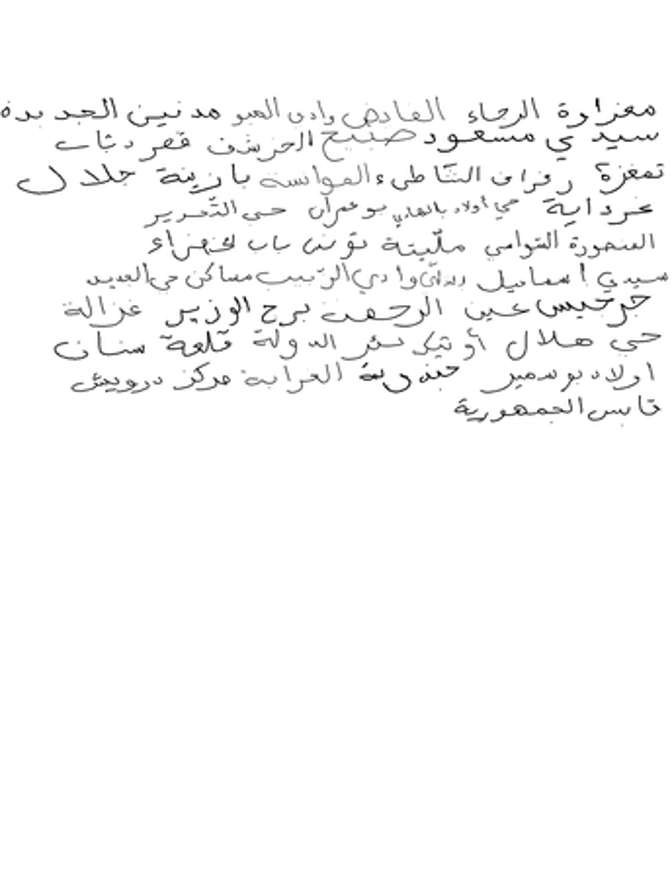 مغراوة الرجاء الفايض وادي الصبو مدنين الجديدة
سيدي مسعود صنبح الخريف قصر دباب
تمغزة رفراف الشاطىء العوابسة بازينة جلال
غرداية حي أولاد بالهادي بوعمران حي التحرير
المنصورة القوامي مليتة تونس باب الخضراء
سيدي اسماعيل وادي الزبيب مساكن حي العيد
جرجيس عين الرحمت برج الوزير غزالة
حي هلال أوتيك نصر الدولة قلعة سنان
اولاد بوسمير جندوبة العرابة مركز درويش
قابس الجمهورية